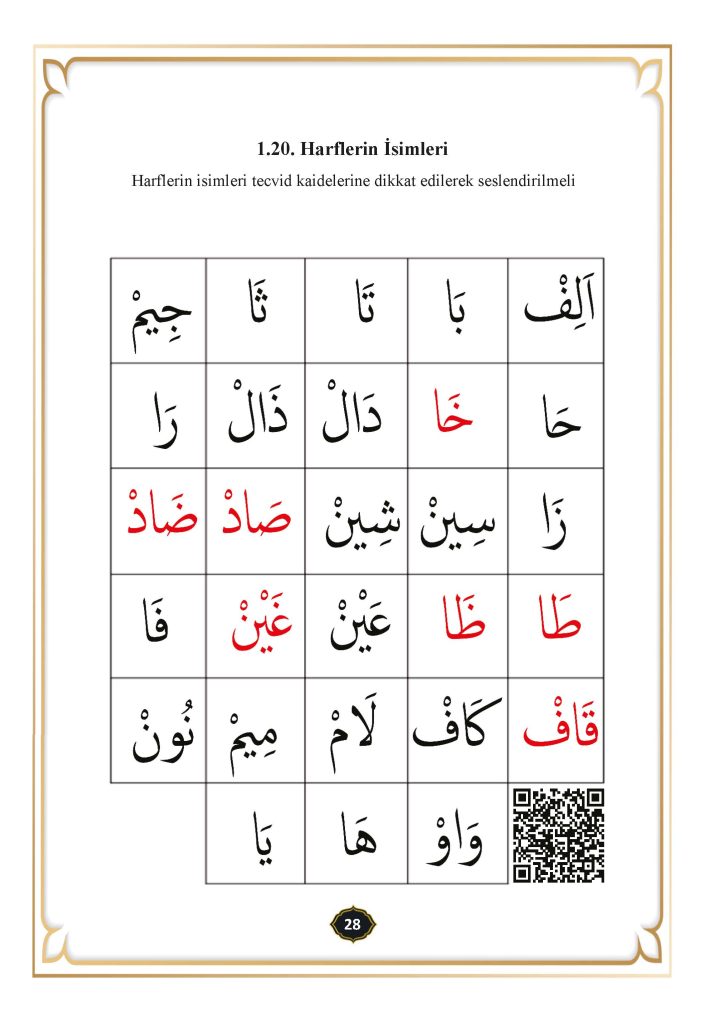 1.20. Harflerin İsimleri
Harflerin isimleri tecvid kaidelerine dikkat edilerek seslendirilmeli
اَلِفْ بَا تَا ثَا جِيمْ
حَا خَا دَالْ ذَالْ رَا
زَا سِينْ شِينْ صَادْ ضَادْ
طَا ظَا عَيْنْ غَيْنْ فَا
قَافْ كَافْ لَامْ مِيمْ نُونْ
وَاوْ هَا يَا
28